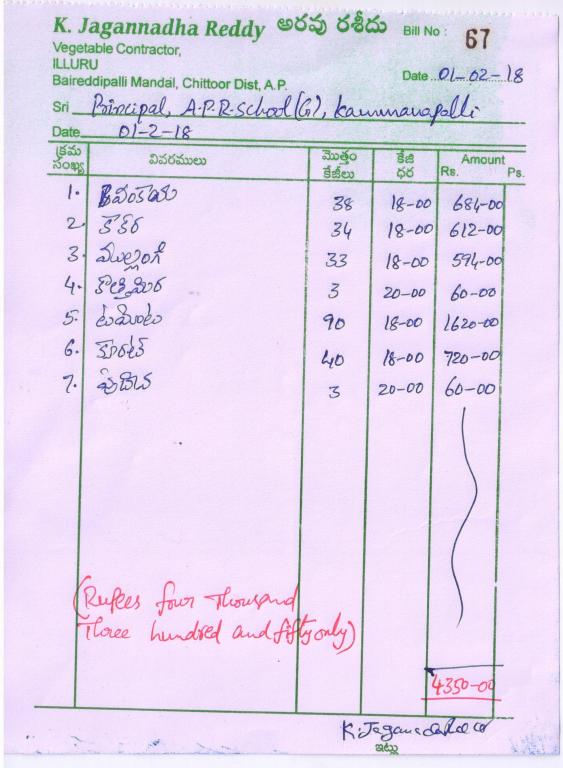 K. Jagannadha Reddy అరవు రశీదు Bill No : 67
Vegetable Contractor,
ILLURU
Baireddipalli Mandal, Chittoor Dist, A.P. Date 01-02-18
Sri Principal, A.P.R-School(G), Kammanapalli
Date 01-2-18
క్రమ సంఖ్య వివరములు మొత్తం కేజీలు కేజి ధర Amount Rs. Ps.
1. వంకాయ 38 18-00 684-00
2. కాకర 34 18-00 612-00
3. ముల్లంగి 33 18-00 594-00
4. కొత్తిమిర 3 20-00 60-00
5. టమోటు 90 18-00 1620-00
6. క్యారెట్ 40 18-00 720-00
7. పుదిన 3 20-00 60-00
(Rupees four Thousand
Three hundred and fifty only)
4350-00
ఇట్లు